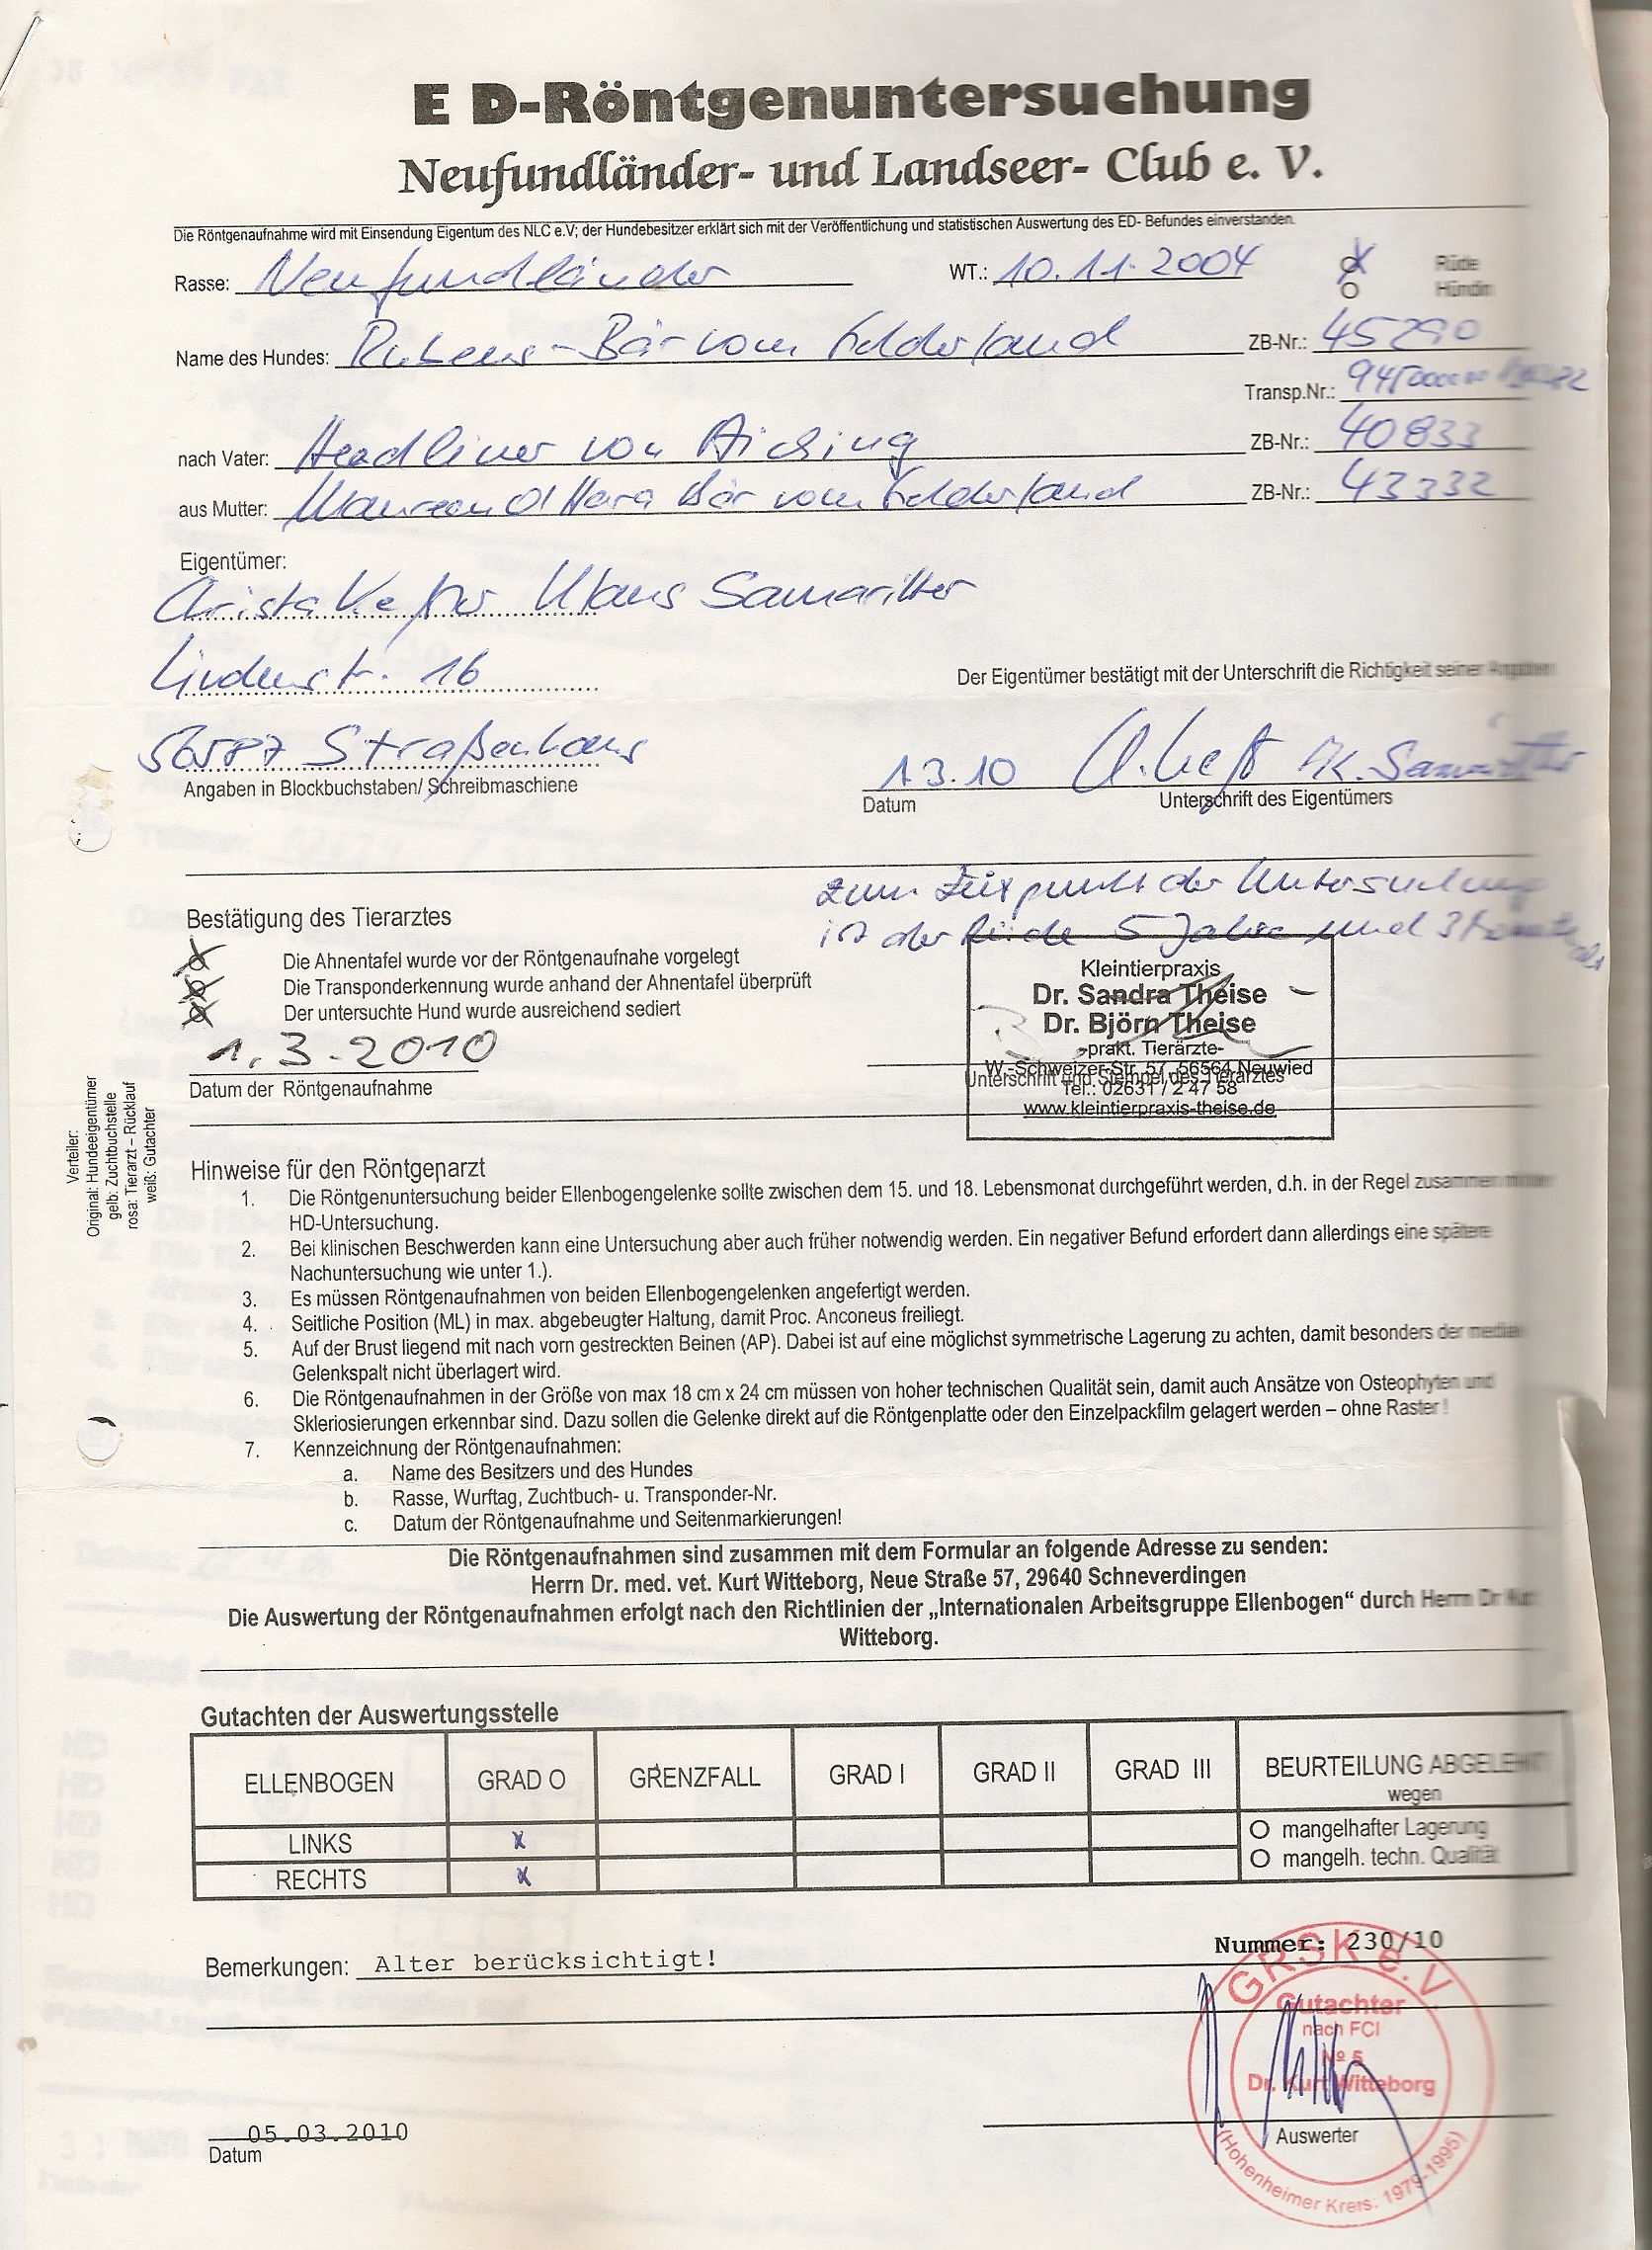 E D-Röntgenuntersuchung
Neufundländer- und Landseer- Club e. V.
Die Röntgenaufnahme wird mit Einsendung Eigentum des NLC e.V; der Hundebesitzer erklärt sich mit der Veröffentlichung und statistischen Auswertung des ED- Befundes einverstanden.
Rasse: Neufundländer WT.: 10.11.2004 Rüde
O Hündin
Name des Hundes: Rubens-Bär vom Felderland ZB-Nr.: 45290
Transp.Nr.:
nach Vater: Headliner von Aiching ZB-Nr.: 40833
aus Mutter: Maureen O'Hara Bär vom Felderland ZB-Nr.: 43332
Eigentümer:
Christa Klaus Samaritter
Lindenstr. 16
Der Eigentümer bestätigt mit der Unterschrift die Richtigkeit seiner Angaben
56587 Straßenhaus
1.3.10
Angaben in Blockbuchstaben/ Schreibmaschiene
Datum Unterschrift des Eigentümers
zum Zeitpunkt der Untersuchung
ist der Rüde 5 Jahre und 3 Monate alt
Bestätigung des Tierarztes
Die Ahnentafel wurde vor der Röntgenaufnahe vorgelegt
Die Transponderkennung wurde anhand der Ahnentafel überprüft
Der untersuchte Hund wurde ausreichend sediert
1.3.2010
Datum der Röntgenaufnahme
Kleintierpraxis
Dr. Sandra Theise
Dr. Björn Theise
-prakt. Tierärzte-
W.-Schweizer-Str. 57, 56564 Neuwied
Unterschrift und Stempel des Tierarztes
Tel.: 02631 / 2 47 58
www.kleintierpraxis-theise.de
Verteiler:
Original: Hundeeigentümer
gelb: Zuchtbuchstelle
rosa: Tierarzt – Rücklauf
weiß: Gutachter
Hinweise für den Röntgenarzt
1. Die Röntgenuntersuchung beider Ellenbogengelenke sollte zwischen dem 15. und 18. Lebensmonat durchgeführt werden, d.h. in der Regel zusammen mit der
HD-Untersuchung.
2. Bei klinischen Beschwerden kann eine Untersuchung aber auch früher notwendig werden. Ein negativer Befund erfordert dann allerdings eine spätere
Nachuntersuchung wie unter 1.).
3. Es müssen Röntgenaufnahmen von beiden Ellenbogengelenken angefertigt werden.
4. Seitliche Position (ML) in max. abgebeugter Haltung, damit Proc. Anconeus freiliegt.
5. Auf der Brust liegend mit nach vorn gestreckten Beinen (AP). Dabei ist auf eine möglichst symmetrische Lagerung zu achten, damit besonders der mediale
Gelenkspalt nicht überlagert wird.
6. Die Röntgenaufnahmen in der Größe von max 18 cm x 24 cm müssen von hoher technischen Qualität sein, damit auch Ansätze von Osteophyten und
Skleriosierungen erkennbar sind. Dazu sollen die Gelenke direkt auf die Röntgenplatte oder den Einzelpackfilm gelagert werden – ohne Raster !
7. Kennzeichnung der Röntgenaufnahmen:
a. Name des Besitzers und des Hundes
b. Rasse, Wurftag, Zuchtbuch- u. Transponder-Nr.
c. Datum der Röntgenaufnahme und Seitenmarkierungen!
Die Röntgenaufnahmen sind zusammen mit dem Formular an folgende Adresse zu senden:
Herrn Dr. med. vet. Kurt Witteborg, Neue Straße 57, 29640 Schneverdingen
Die Auswertung der Röntgenaufnahmen erfolgt nach den Richtlinien der „Internationalen Arbeitsgruppe Ellenbogen“ durch Herrn Dr Kurt
Witteborg.
Gutachten der Auswertungsstelle
ELLENBOGEN GRAD O GRENZFALL GRAD I GRAD II GRAD III BEURTEILUNG ABGELEHNT
wegen
LINKS x O mangelhafter Lagerung
RECHTS x O mangelh. techn. Qualität
Nummer: 230/10
Bemerkungen: Alter berücksichtigt!
GRSK e.V.
Gutachter
nach FCI
Nº 5
Dr. Kurt Witteborg
(Hohenheimer Kreis: 1979-1995)
05.03.2010
Datum Auswerter